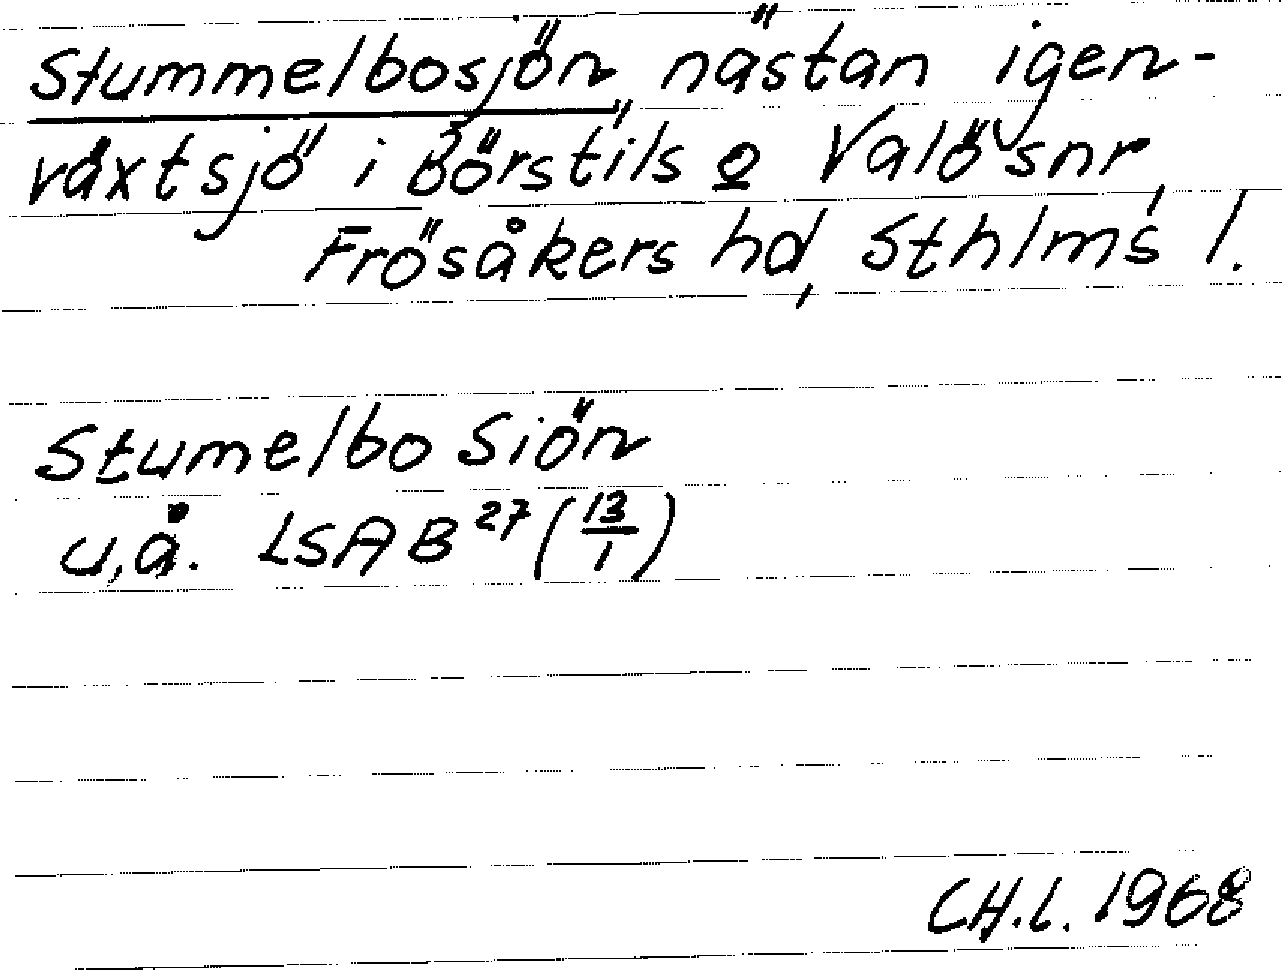 Stummelbosjön, nästan igen-
växt sjö i Börstils o Valö snr,
Frösåkers hd, Sthlms l.
Stumelbo Siön
u,å. LSA B 27 (13/1)
CH.L. 1968